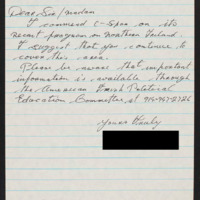 Dear Sir/Madam
I commend C-Span on its
recent program on Northern Ireland.
I suggest that you continue to
cover this area.
Please be aware that important
information is available through
the American Irish Political
Education Committee, at
Yours Truly